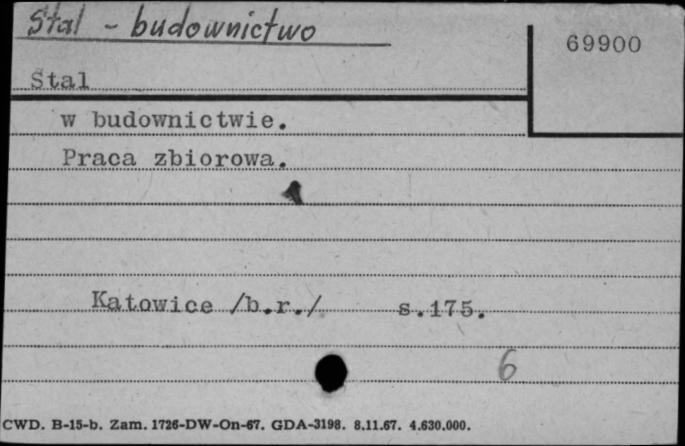 Stal - budownictwo
69900
Stal
w budownictwie.
Praca zbiorowa.
Katowice /b.r./ s.175.
6
CWD. B-15-b. Zam. 1726-DW-On-67. GDA-3198. 8.11.67. 4.630.000.